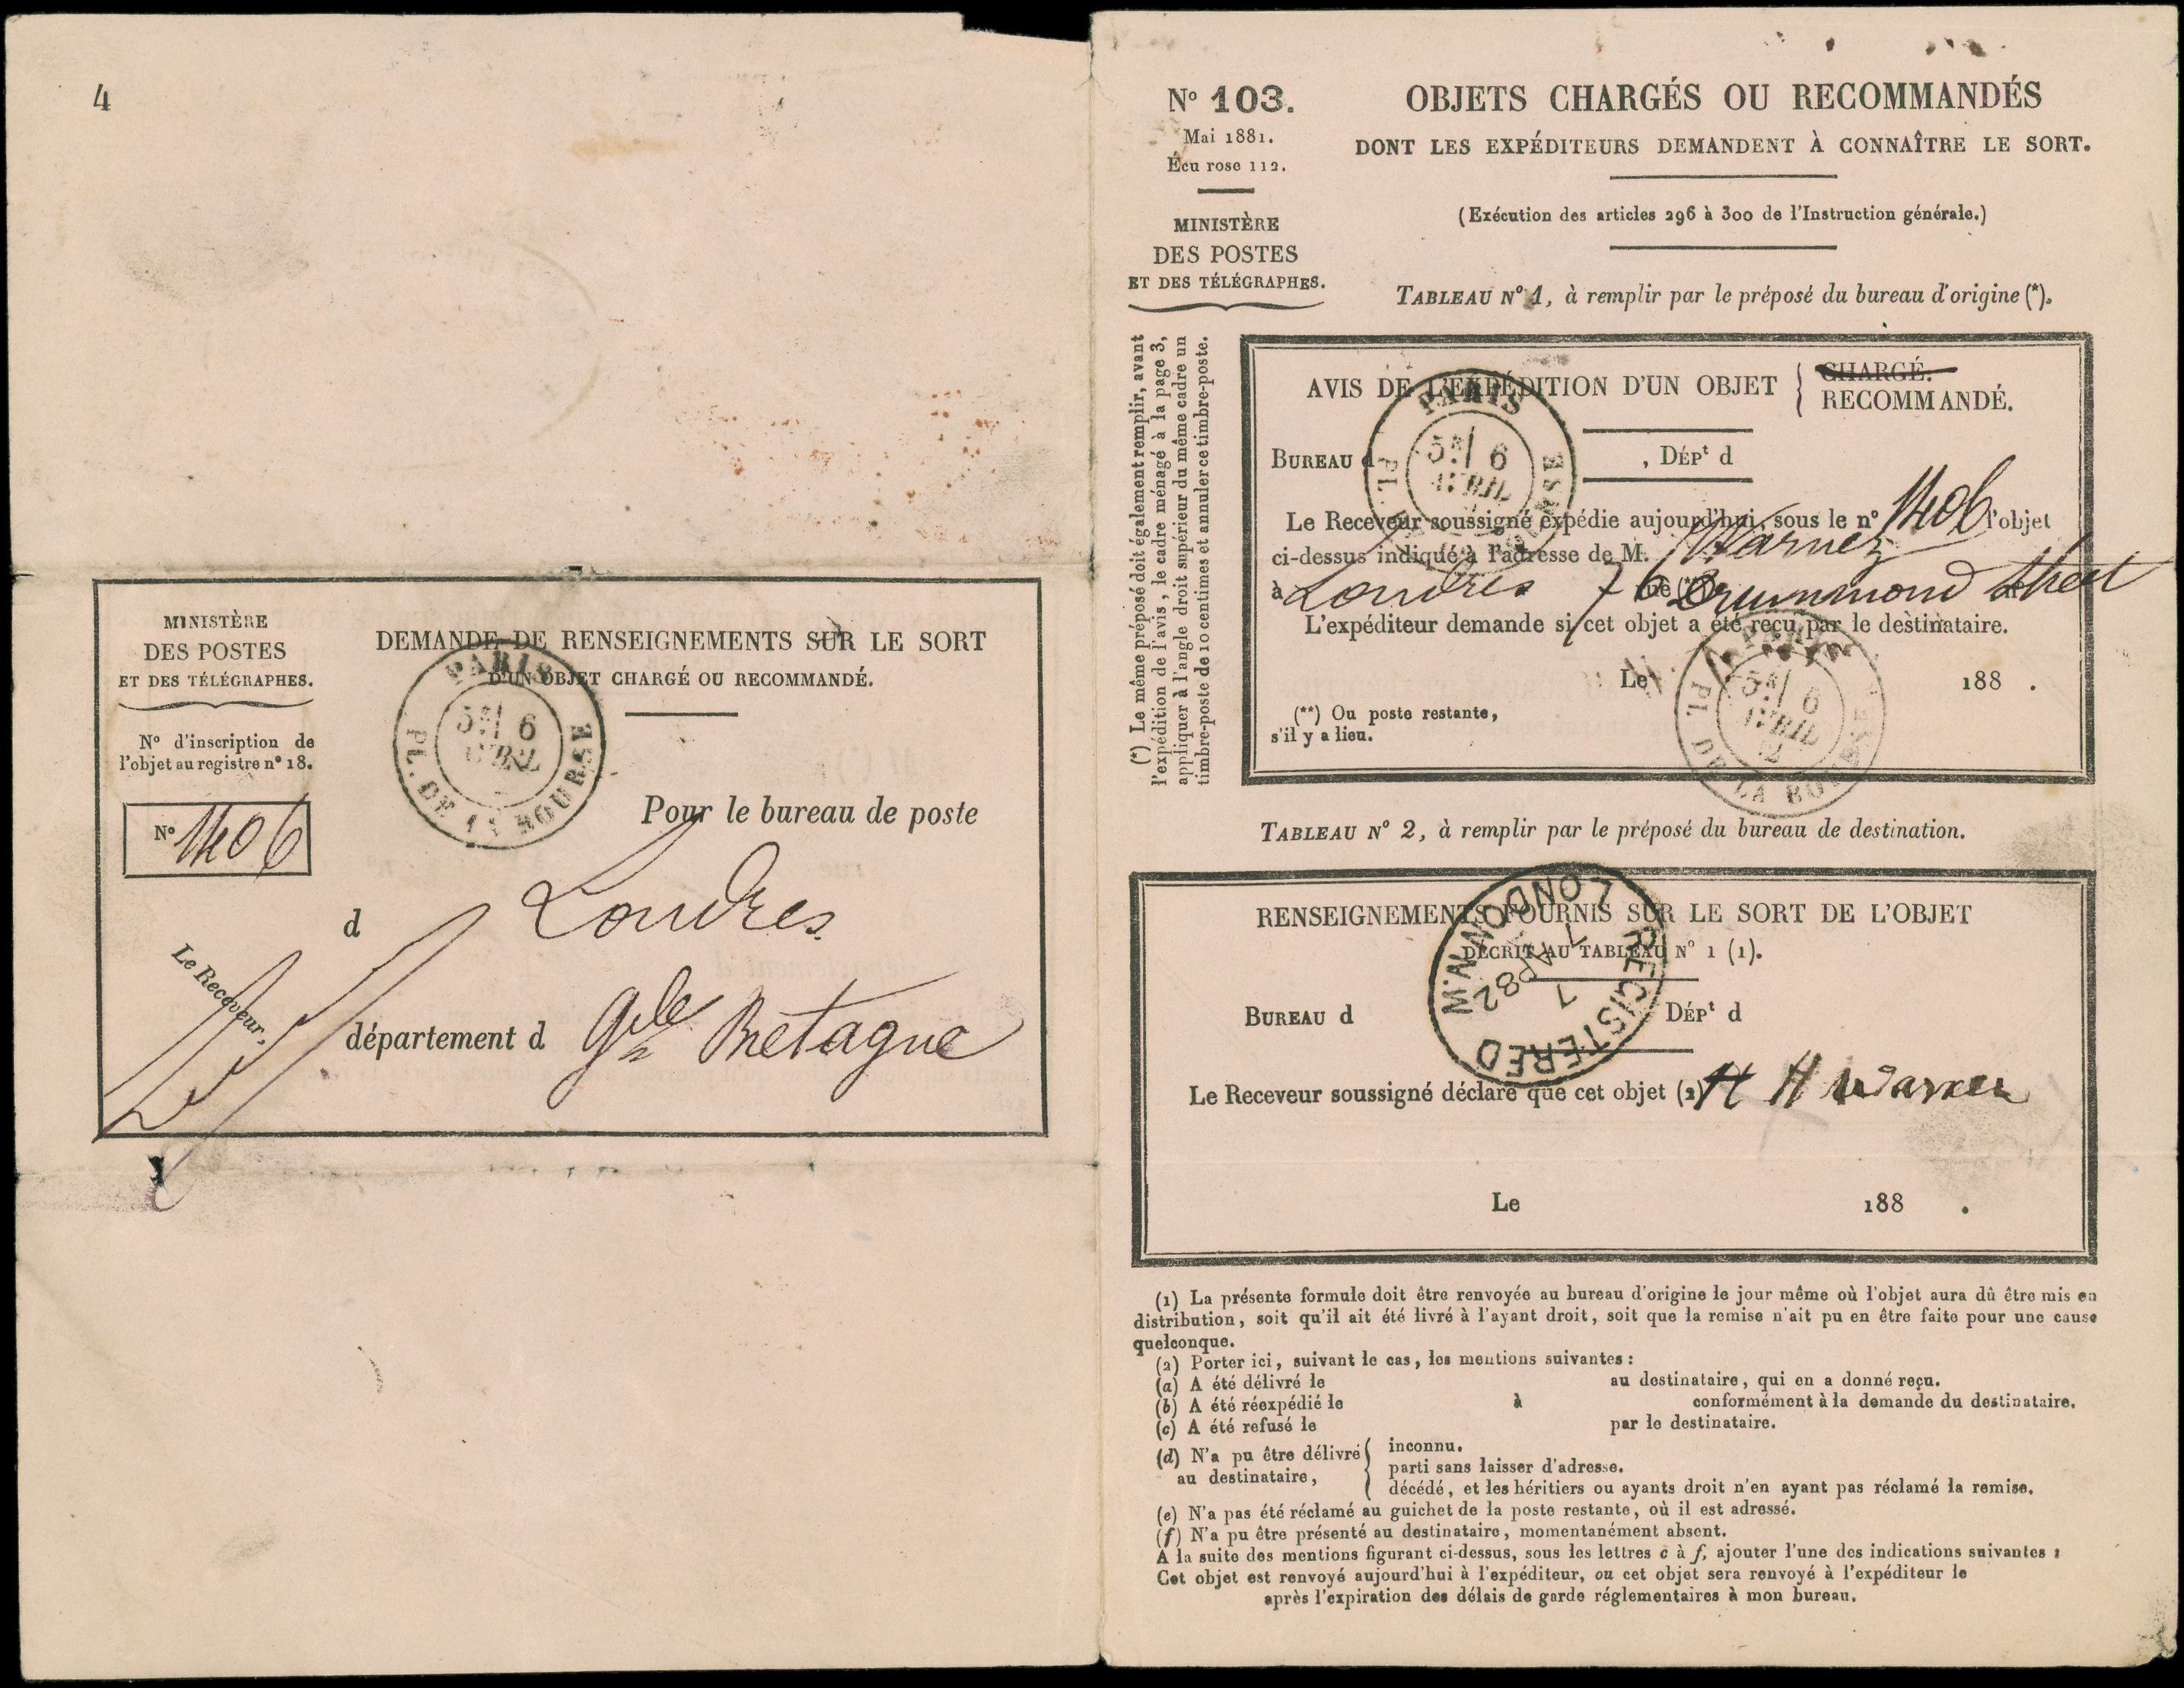 4
MINISTÈRE
DES POSTES
ET DES TÉLÉGRAPHES.
N° d'inscription de
l'objet au registre n° 18.
N° 1406
DEMANDE DE RENSEIGNEMENTS SUR LE SORT
D'UN OBJET CHARGÉ OU RECOMMANDÉ.
PARIS
6
AVRIL
PL. DE LA BOURSE
Pour le bureau de poste
d Londres
Le Receveur,
département d Gde Bretagne
N° 103.
Mai 1881.
Écu rose 112.
MINISTÈRE
DES POSTES
ET DES TÉLÉGRAPHES.
OBJETS CHARGÉS OU RECOMMANDÉS
DONT LES EXPÉDITEURS DEMANDENT À CONNAÎTRE LE SORT.
(Exécution des articles 296 à 300 de l'Instruction générale.)
TABLEAU N° 1, à remplir par le préposé du bureau d'origine (*).
(*) Le même préposé doit également remplir, avant
l'expédition de l'avis, le cadre ménagé à la page 3,
appliquer à l'angle droit supérieur du même cadre un
timbre-poste de 10 centimes et annuler ce timbre-poste.
AVIS DE L'EXPÉDITION D'UN OBJET { CHARGÉ.
RECOMMANDÉ.
PARIS
6
AVRIL
BUREAU d , DÉPt d
Le Receveur soussigné expédie aujourd'hui, sous le n° 1406 l'objet
ci-dessus indiqué à l'adresse de M. Warner
à Londres 76 rue (**) Drummond Street
L'expéditeur demande si cet objet a été reçu par le destinataire.
Le 188 .
(**) Ou poste restante,
s'il y a lieu.
PARIS
6
AVRIL
PL. DE LA BOURSE
TABLEAU N° 2, à remplir par le préposé du bureau de destination.
RENSEIGNEMENTS FOURNIS SUR LE SORT DE L'OBJET
DÉCRIT AU TABLEAU N° 1 (1).
REGISTERED
LONDON.W
7 AP 82
BUREAU d DÉPt d
Le Receveur soussigné déclare que cet objet (2) H H Warner
Le 188 .
(1) La présente formule doit être renvoyée au bureau d'origine le jour même où l'objet aura dû être mis en
distribution, soit qu'il ait été livré à l'ayant droit, soit que la remise n'ait pu en être faite pour une cause
quelconque.
(2) Porter ici, suivant le cas, les mentions suivantes :
(a) A été délivré le au destinataire, qui en a donné reçu.
(b) A été réexpédié le à conformément à la demande du destinataire.
(c) A été refusé le par le destinataire.
(d) N'a pu être délivré { inconnu.
au destinataire, parti sans laisser d'adresse.
décédé, et les héritiers ou ayants droit n'en ayant pas réclamé la remise.
(e) N'a pas été réclamé au guichet de la poste restante, où il est adressé.
(f) N'a pu être présenté au destinataire, momentanément absent.
A la suite des mentions figurant ci-dessus, sous les lettres c à f, ajouter l'une des indications suivantes :
Cet objet est renvoyé aujourd'hui à l'expéditeur, ou cet objet sera renvoyé à l'expéditeur le
après l'expiration des délais de garde réglementaires à mon bureau.